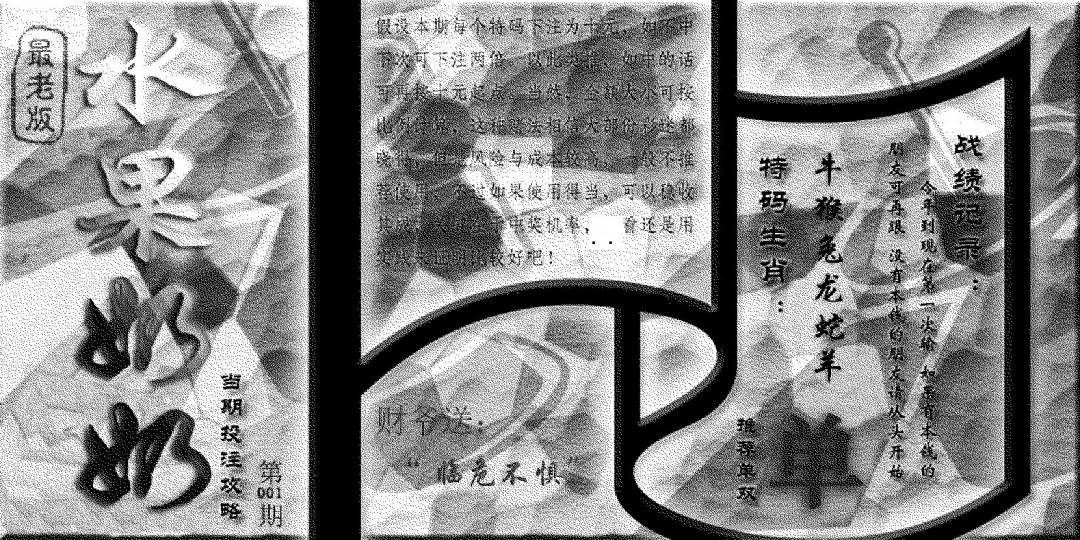 最老版
水果奶奶
当期投注攻略
第
001
期
假设本期每个特码下注为十元，如不中
下次可下注两倍，以此类推，如中的话
可再按十元起点，当然，金额大小可按
比例计算，这种
但是风险与成本较高，一般不推
荐使用，不过如果使用得当，可以稳收
中奖机率，
看还是用
比较好吧！
财爷送：
“临危不惧”
战绩记录：
今年到现在第一次输 如果有本钱的
朋友可再跟 没有本钱的朋友请从头开始
牛猴兔龙蛇羊
特码生肖：
推荐单双
单